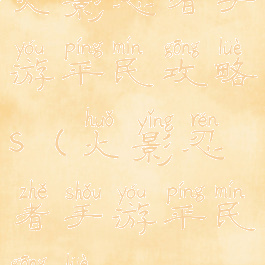 火影忍者手
yóu píng mín gōng lüè
游平民攻略
huǒ yǐng rěn
s（火影忍
zhě shǒu yóu píng mín
者手游平民